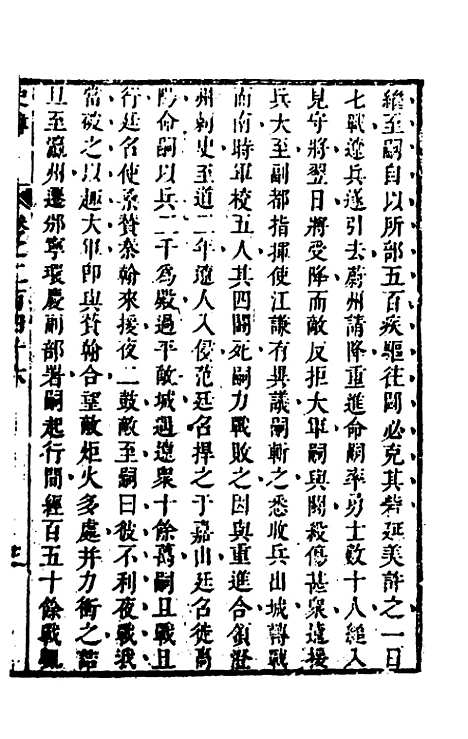 繼至嗣自以所部五百疾驅往鬪必克其砦延美許之一日
七戰遼兵遂引去蔚州請降重進命嗣率勇士數十人縋入
見守將翌日將受降而敵反拒大軍嗣與鬪殺傷甚眾遠援
兵大至副都指揮使江謙有撰議嗣斬之悉收兵出城轉戰
而南時軍校五人其四鬪死嗣力戰敗之因與重進合領澄
州刺史至道二年遼人入侵范廷名捍之于嘉山廷名徙高
陽命嗣以兵二千爲殿過平敵城遇遼眾十餘萬嗣且戰且
行廷名使桑贊秦翰來援夜二鼓敵至嗣曰彼不利夜戰我
當破之以趣大軍即與贊翰合望敵炬火多處并力衝之詰
旦至瀛州遷邠寧環慶副部署嗣起行間經百五十餘戰
史尊 卷之二百四十六